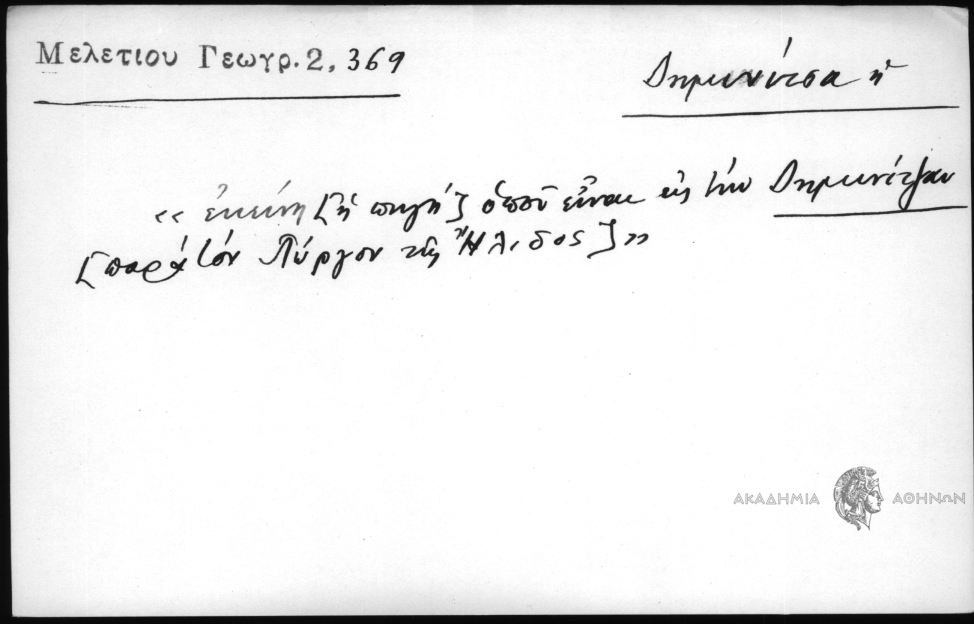 Μελετιου Γεωγρ. 2, 369
Δημινίτσα ἡ
«ἐκείνη [ἡ πηγὴ] ὁποῦ εἶναι εἰς τὴν Δημινίτζαν
[παρὰ τὸν Πύργον τῆς Ἤλιδος]»
ΑΚΑΔΗΜΙΑ ΑΘΗΝΩΝ